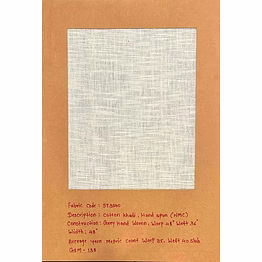 Fabric Code :
Description : Cotton Khadi, Hand spun (NMC)
Construction : Grey Hand Woven, Warp 48" Weft 36"
Width; 48"
Average Yarn Metric Count Warp 35, Weft 40 Slub
GSM - 138